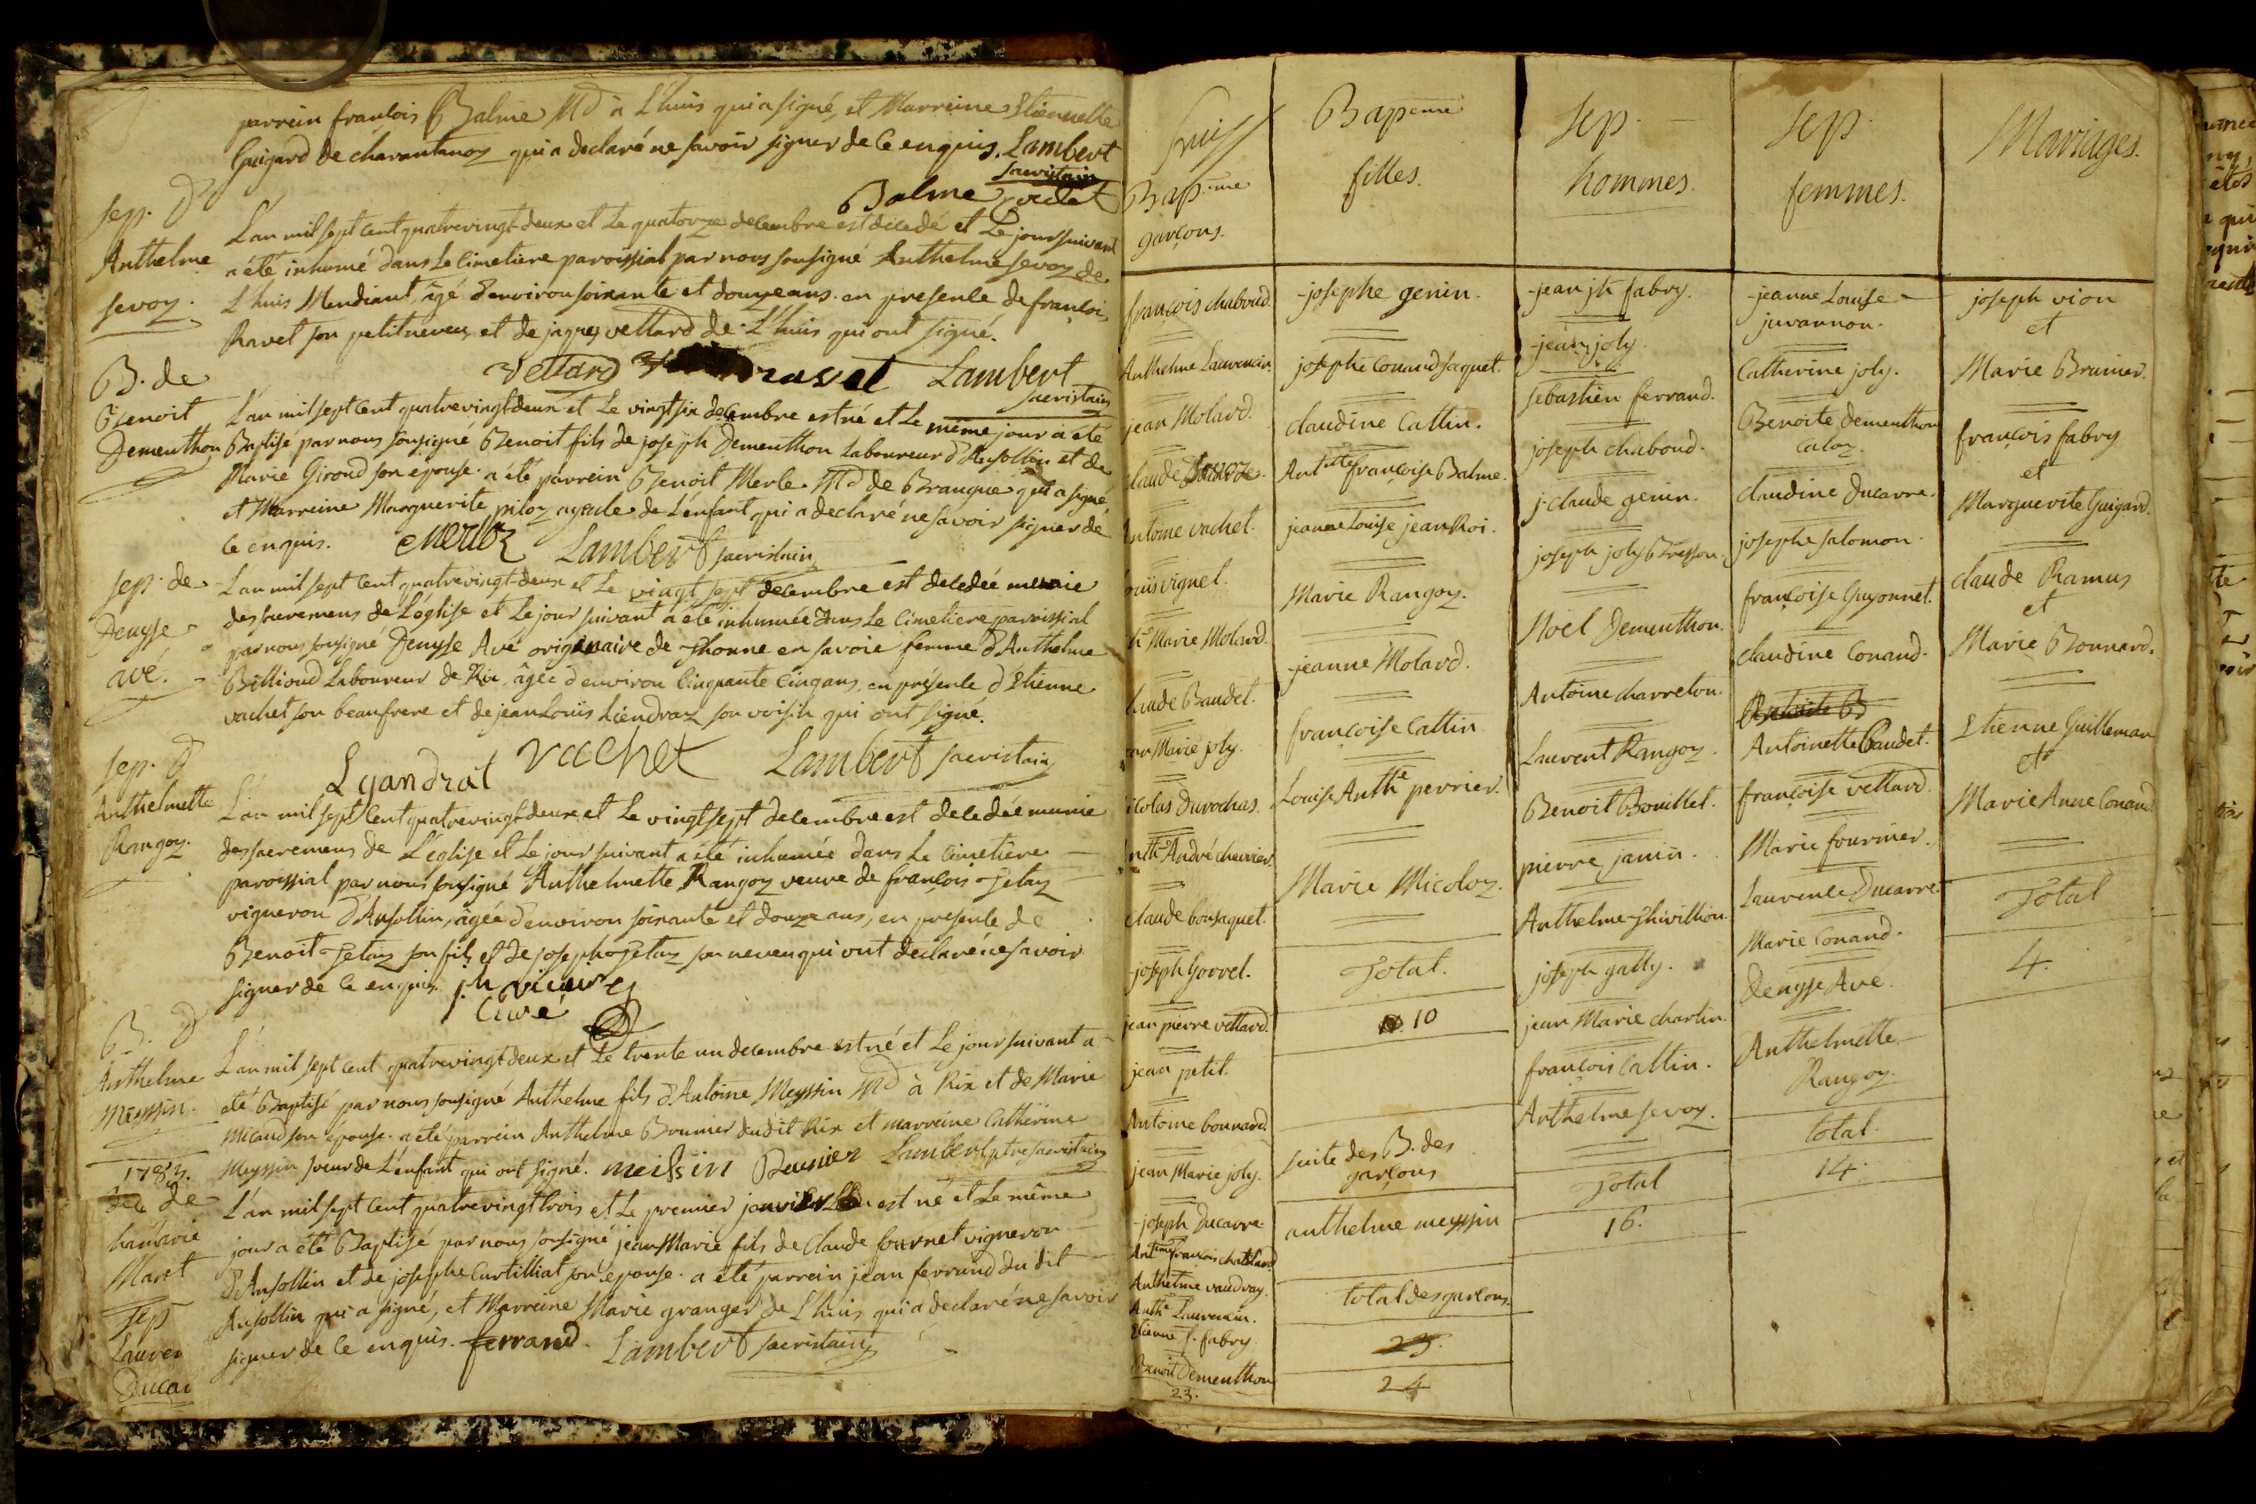 parrein francois Balme Md à L'huis qui a signé, et Marreine Etiennette
Guigard de charantanoz qui a declaré ne savoir signer de ce enquis. Lambert
sacristain
Balme
sep. d'
Anthelme
sevoz.
L'an mil sept cent quatrevingt-deux et Le quatorze decembre est decedé et Le jour suivant
a été inhumé dans Le Cimetiere paroissial par nous sousigné Anthelme sevoz de
L'huis Mendiant âgé d'environ soixante et douze ans. en presence de françois
Ravet son petit neveu, et de jaques vettard de L'huis qui ont signé.
vettard ravet Lambert
sacristain
B. de
Benoit
Dementhon
L'an mil sept cent quatrevingt-deux et Le vingt six decembre est né et Le même jour a été
Baptisé par nous sousigné Benoit fils de joseph Dementhon Laboureur d'Ansollin et de
Marie Giroud son epouse. a été parrein Benoit Merle Md de Brangue qui a signé
et Marreine Marguerite piloz ayeule de L'enfant qui a declaré ne savoir signer de
ce enquis. Lambert sacristain
sep. de
Denyse
avé.
L'an mil sept cent quatrevingt-deux et Le vingt sept decembre est decedée munie
des sacremens de L'église et Le jour suivant a été inhumée dans Le Cimetiere paroissial
par nous sousigné Denyse Avé originaire de Thonne en savoie femme d'Anthelme
Billioud Laboureur de Rix, âgée d'environ Cinquante Cinq ans, en présence d'Etienne
vachet son beaufrere et de jean Louis Liendraz son voisin qui ont signé.
Lyandrat vachet Lambert sacristain
sep. d'
Anthelmette
Rangoz.
L'an mil sept Cent quatrevingt-deux et Le vingt sept decembre est decedée munie
des sacremens de L'église et Le jour suivant a été inhumée dans Le Cimetiere
paroissial par nous sousigné Anthelmette Rangoz veuve de françois Tetaz
vigneron d'Ansollin, âgée d'environ soixante et douze ans, en presence de
Benoit Tetaz son fils et de joseph Tetaz son neveu qui ont declaré ne savoir
signer de ce enquis.
Curé
B. d'
Anthelme
Meyssin.
L'an mil sept cent quatrevingt-deux et Le trente un decembre est né et Le jour suivant a
été Baptisé par nous sousigné Anthelme fils d'Antoine Meyssin Md à Rix et de Marie
Micaud son épouse. a été parrein Anthelme Brunier dudit Rix et marreine Catherine
Meyssin soeur de L'enfant qui ont signé. meissin Brunier Lambert ptre sacristain
1783.
L'an mil sept cent quatrevingt trois et Le premier janvier est né et Le même
jour a été Baptisé par nous sousigné jean Marie fils de Claude Cournet vigneron
d'Ansollin et de josephe Curtilliat son epouse. a été parrein jean ferrand du dit
Ansollin qui a signé, et Marreine Marie granger de L'huis qui a declaré ne savoir
signer de ce enquis. ferrand. Lambert sacristain
Maret
sep
Lauren
Ducar
Bap.me
garçons.
françois chaboud.
Anthelme Laurencin.
jean Molard.
Antoine vachet.
Louis vignet.
Marie Molard.
Claude Baudet.
jean Marie joly.
Nicolas Durochas.
Anth.e André chevrier.
claude bonjaquet.
joseph Gorrel.
jean pierre vettard.
jean petit.
Antoine bonnard.
jean Marie joly.
joseph Ducarre
Anthelme vaudray.
Anth.e Laurencin.
Etienne f. fabry
Benoit Dementhon
23.
Bapeme
filles.
josephe genin.
josephe Conand jaquet.
claudine Cattin.
Ant.tte françoise Balme.
jeanne Louise jean Roi.
Marie Rangoz.
jeanne Molard.
françoise Cattin
Louise Anth.e perrier.
Marie Micoloz.
Total.
10
suite des B. des
garçons
anthelme meyssin
total des garçons.
23.
24
sep.
hommes.
jean jh fabry.
jean joly.
sebastien ferrand.
joseph chaboud.
j. claude genin.
joseph joly Bresson.
Noel Dementhon.
Antoine charreton.
Laurent Rangoz.
Benoit Bouillet.
pierre janin.
Anthelme Thivillion.
joseph gatty.
jean Marie charlin.
francois Cattin.
Anthelme sevoz.
Total
16.
sep.
femmes.
jeanne Louise
juvannon.
Catherine joly.
Benoite Dementhon
Caloz.
claudine Ducarre.
josephe salomon.
françoise Guyonnet.
claudine Conand.
Antoinette Baudet.
françoise vettard.
Marie fournier.
Laurence Ducarre.
Marie Conand.
Denyse Avé.
Anthelmette
Rangoz.
total.
14.
Mariages.
joseph vion
et
Marie Brunier.
françois fabry
et
Marguerite Guigard.
claude Ramus
et
Marie Bonnard.
Etienne Guilleman
et
Marie Anne Conand
Total
4.